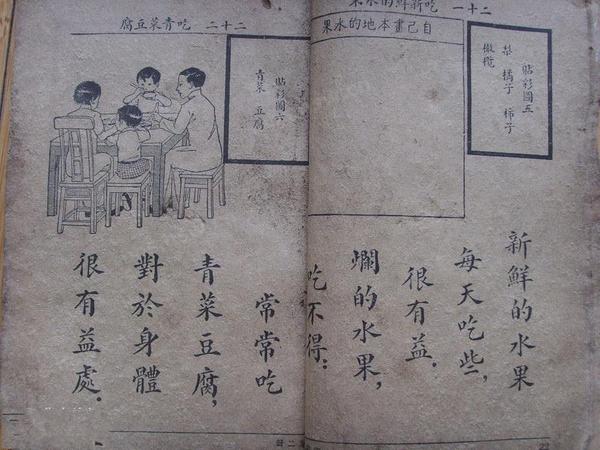 二十一 吃新鮮的水果
貼彩圖五
梨 橘子 柿子
橄欖
自己畫本地的水果
新鮮的水果
每天吃些,
很有益.
爛的水果,
吃不得:
22
二十二 吃青菜豆腐
貼彩圖六
青菜 豆腐
常常吃
青菜豆腐,
對於身體
很有益處.